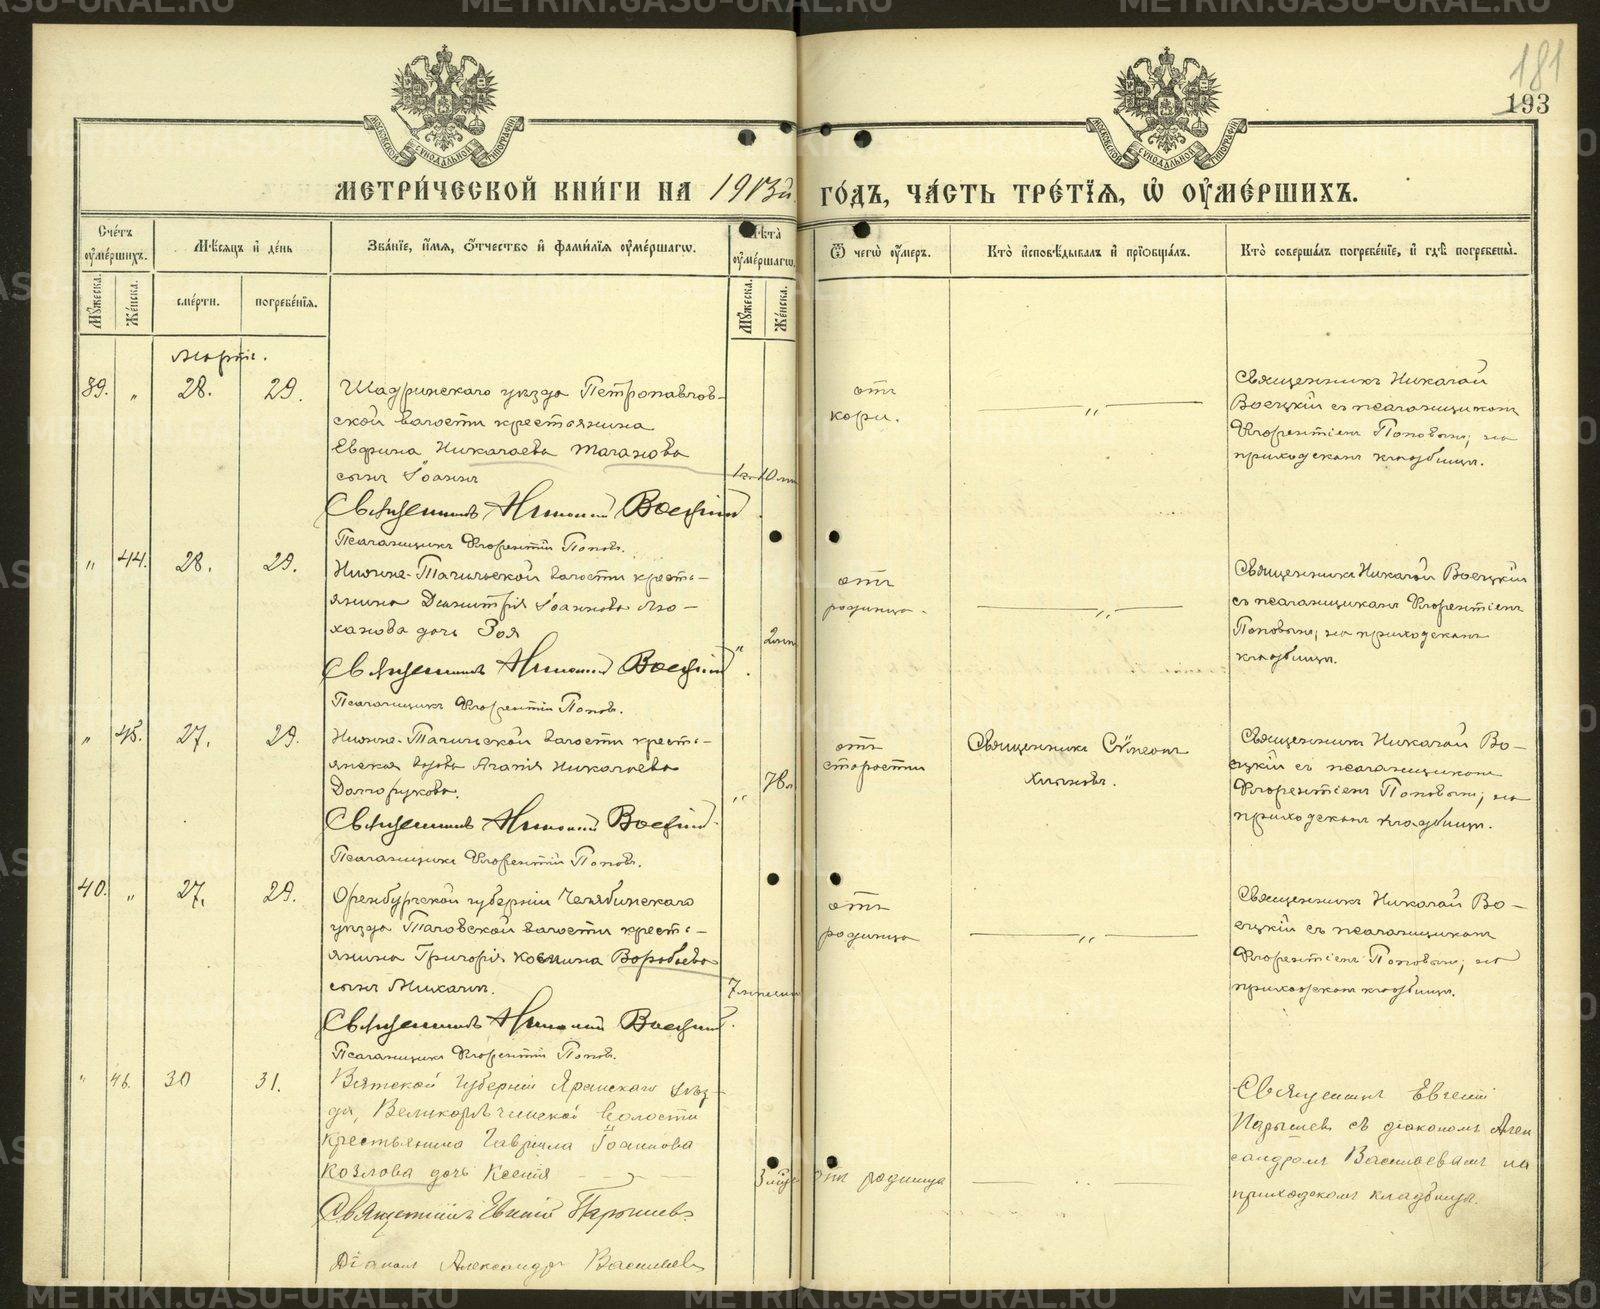 181
193
МЕТРИ́ЧЕСКОЙ КНИ́ГИ НА 1913й ГО́ДЪ, ЧА́СТЬ ТРЕ́ТІѦ, Ѡ҆ ОУ҆МЕ́РШИХЪ.
Сче́тъ оу҆ме́ршихъ.
Мѣ́сѧцъ и҆ де́нь
Зва́нїе, и҆́мѧ, ѻ҆́тчество и҆ фамѝлїѧ оу҆ме́ршагѡ.
Лѣ́та оу҆ме́ршагѡ.
Ѿ чегѡ̀ оу҆́меръ.
Кто̀ и҆сповѣ́дывалъ и҆ прїѻбща́лъ.
Кто̀ соверша́лъ погребе́нїе, и҆ гдѣ̀ погребены̀.
Мꙋ́жеска.
Же́нска.
сме́рти.
погребе́нїѧ.
Мꙋ́жеска.
Же́нска.
Мартъ.
39. " 28. 29.
Шадринскаго уѣзда Петропавлов-
ской волости крестьянина
Евфима Николаева
сынъ Іоаннъ
Священникъ Николай Воецкій
Псаломщикъ Флорентій Поповъ.
отъ
кори.
"
Священникъ Николай
Воецкій съ псаломщикомъ
Флорентіемъ Поповымъ; на
приходскомъ кладбищѣ.
" 44. 28. 29.
Нижне-Тагильской волости кресть-
янина Димитрія Іоаннова
дочь Зоя
Священникъ Николай Воецкій
Псаломщикъ Флорентій Поповъ.
" 2
отъ
родимца.
"
Священникъ Николай Воецкій
съ псаломщикомъ Флорентіемъ
Поповымъ; на приходскомъ
кладбищѣ.
" 45. 27. 29.
Нижне-Тагильской волости кресть-
янская вдова Агапія Николаева
Долгорукова.
Священникъ Николай Воецкій
Псаломщикъ Флорентій Поповъ.
"
отъ
старости
Священникъ Сѵмеонъ
Хлыновъ.
Священникъ Николай Во-
ецкій съ псаломщикомъ
Флорентіемъ Поповымъ; на
приходскомъ кладбищѣ.
40. " 27. 29.
Оренбургской губерніи Челябинскаго
уѣзда Таловской волости кресть-
янина Григорія Космина Воробьева
сынъ Михаилъ.
Священникъ Николай Воецкій
Псаломщикъ Флорентій Поповъ.
7
отъ
родимца
"
Священникъ Николай Во-
ецкій съ псаломщикомъ
Флорентіемъ Поповымъ; на
приходскомъ кладбищѣ.
" 46. 30 31.
Вятской губерніи Яранскаго уѣз-
да, Великорѣчинской волости
крестьянина Гавріила Іоаннова
Козлова дочь Ксенія
Священникъ Евгеній Парышевъ
Діаконъ Александръ Васильевъ
3 мѣс
отъ родимца
Священникъ Евгеній
Парышевъ съ діакономъ Алек
сандромъ Васильевымъ на
приходскомъ кладбищѣ.
METRIKI.GASO-URAL.RU